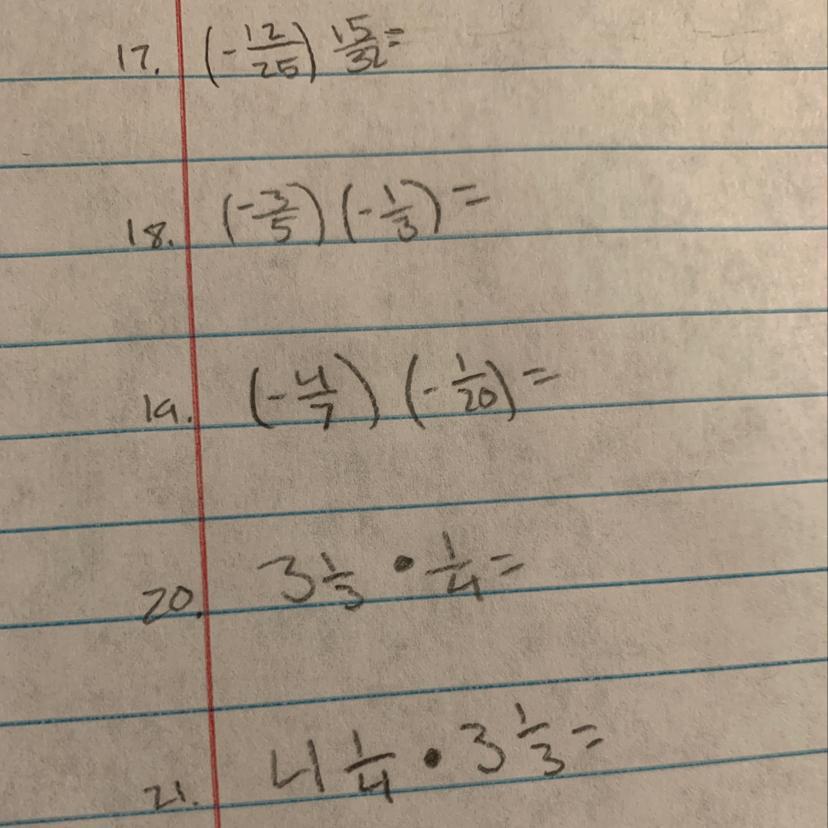 17. (-12/25) 15/32=
18. (-3/5) (-1/3) =
19. (-4/7) (-1/20) =
20. 3 1/3 • 1/4 =
21. 4 1/4 • 3 1/3 =